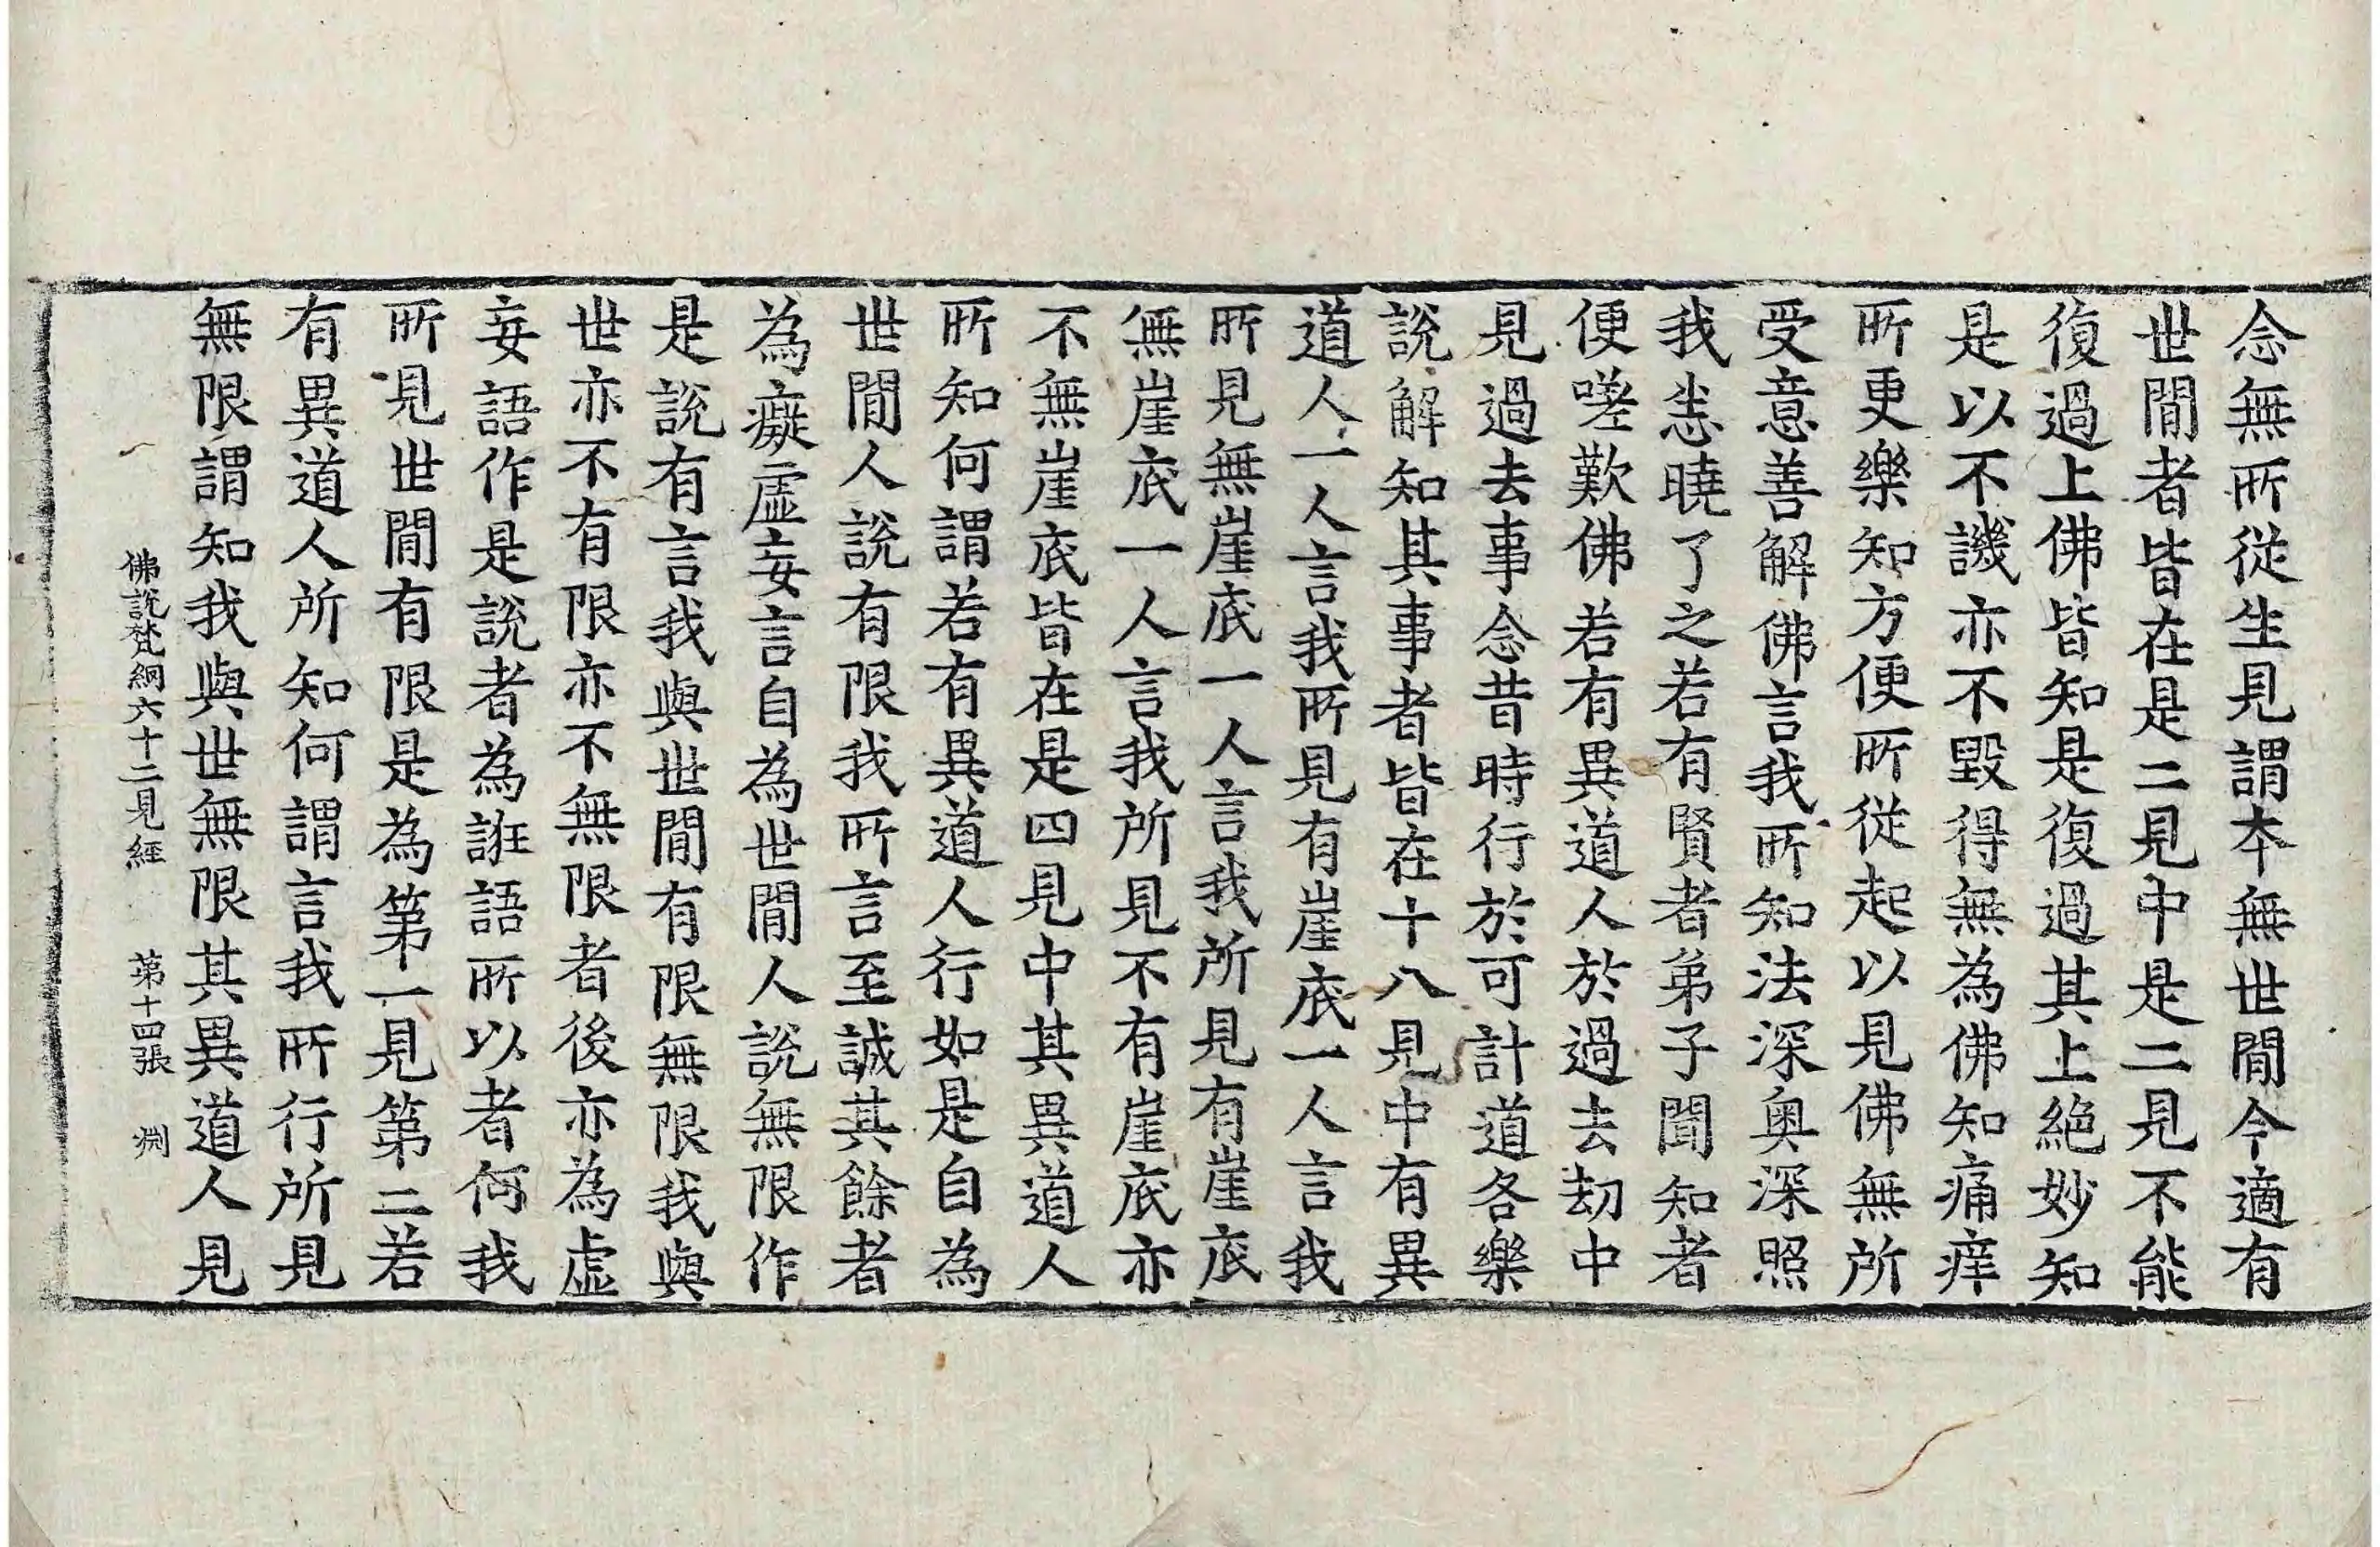 念無所從生見謂本無世閒今適有
世閒者皆在是二見中是二見不能
復過上佛皆知是復過其上絶妙知
是以不譏亦不毀得無為佛知痛痒
所更樂知方便所從起以見佛無所
受意善解佛言我所知法深奥深照
我恙曉了之若有賢者弟子聞知者
便嗟歎佛若有異道人於過去劫中
見過去事念昔時行於可計道各樂
說解知其事者皆在十八見中有異
道人一人言我所見有崖底一人言我
所見無崖底一人言我所見有崖底
無崖底一人言我所見不有崖底亦
不無崖底皆在是四見中其異道人
所知何謂若有異道人行如是自為
世閒人說有限我所言至誠其餘者
為癡虛妄言自為世閒人說無限作
是說有言我與世閒有限無限我與
世亦不有限亦不無限者後亦為虛
妄語作是說者為誑語所以者何我
所見世閒有限是為第一見第二若
有異道人所知何謂言我所行所見
無限謂知我與世無限其異道人見
佛說梵網六十二見經 第十四張 淵